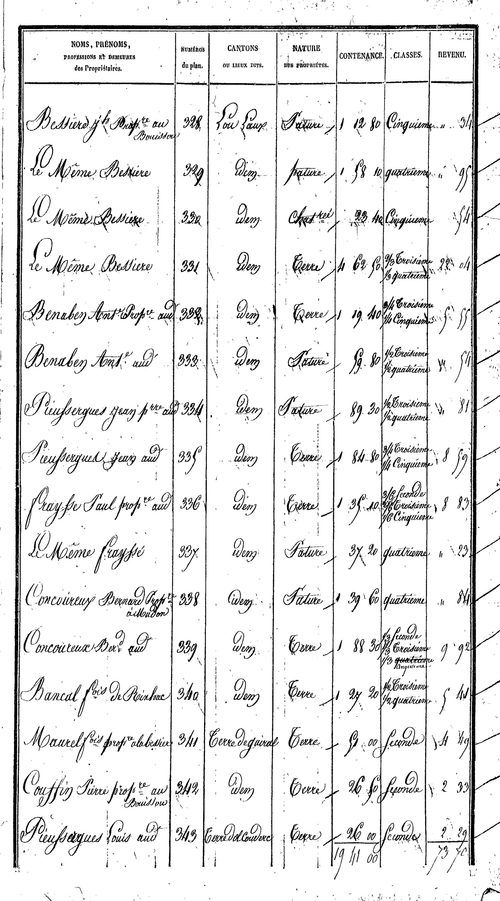 NOMS, PRÉNOMS, PROFESSIONS ET DEMEURES des Propriétaires. NUMÉROS du plan. CANTONS OU LIEUX DITS. NATURE DES PROPRIÉTÉS. CONTENANCE. CLASSES. REVENU.
Bessiere Propre au Bouissou 328 Lou Laux Pature 1 12 80 Cinquieme " 34
Le Même Bessiere 329 idem pature 1 58 10 quatrieme " 95
Le Même Bessiere 330 idem 23 40 Cinquieme 54
Le Même Bessiere 331 idem Terre 4 62 50 2/3 Troisieme 1/3 quatrieme 22 04
Benaben Ante Propre aud 332 idem Terre 1 19 40 3/4 Troisieme 1/4 Cinquieme 5 55
Benaben Ante aud 333 idem Pature 59 80 1/2 Troisieme 1/2 quatrieme " 54
Pieussergues jean pre aud 334 idem Pature 89 30 1/2 Troisieme 1/2 quatrieme " 81
Pieussergues jean aud 335 idem Terre 1 84 80 3/4 Troisieme 1/4 Cinquieme 8 59
fraysse Paul propre aud 336 idem Terre 1 35 10 Seconde Troisieme Cinquieme 8 83
Le Même fraysse 337 idem Pature 37 20 quatrieme " 23
Concoureux Bernard Propre 338 idem Pature 1 39 60 quatrieme " 84
Concoureux Berd aud 339 idem Terre 1 88 30 1/3 Seconde 1/3 Troisieme 1/3 quatrieme 9 92
Bancal fois de 340 idem Terre 1 27 20 1/2 Troisieme 1/2 quatrieme 5 41
Maurel fois propre a la bessiere 341 Terre de guiral Terre 51 00 Seconde 4 49
Couffin Pierre propre au Bouissou 342 idem Terre 26 50 Seconde 2 33
Pieussergues Louis aud 343 Terre del Couderc Terre 26 00 Seconde 2 29
19 41 00 73